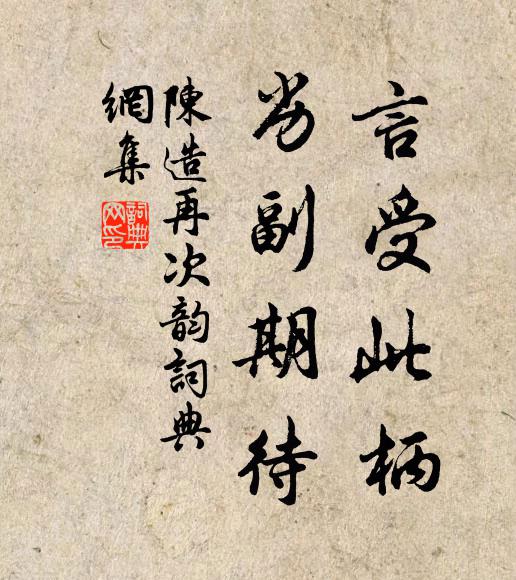 言受此柄
劣副期待
陳造再次韵詞典
網集
詞典網印